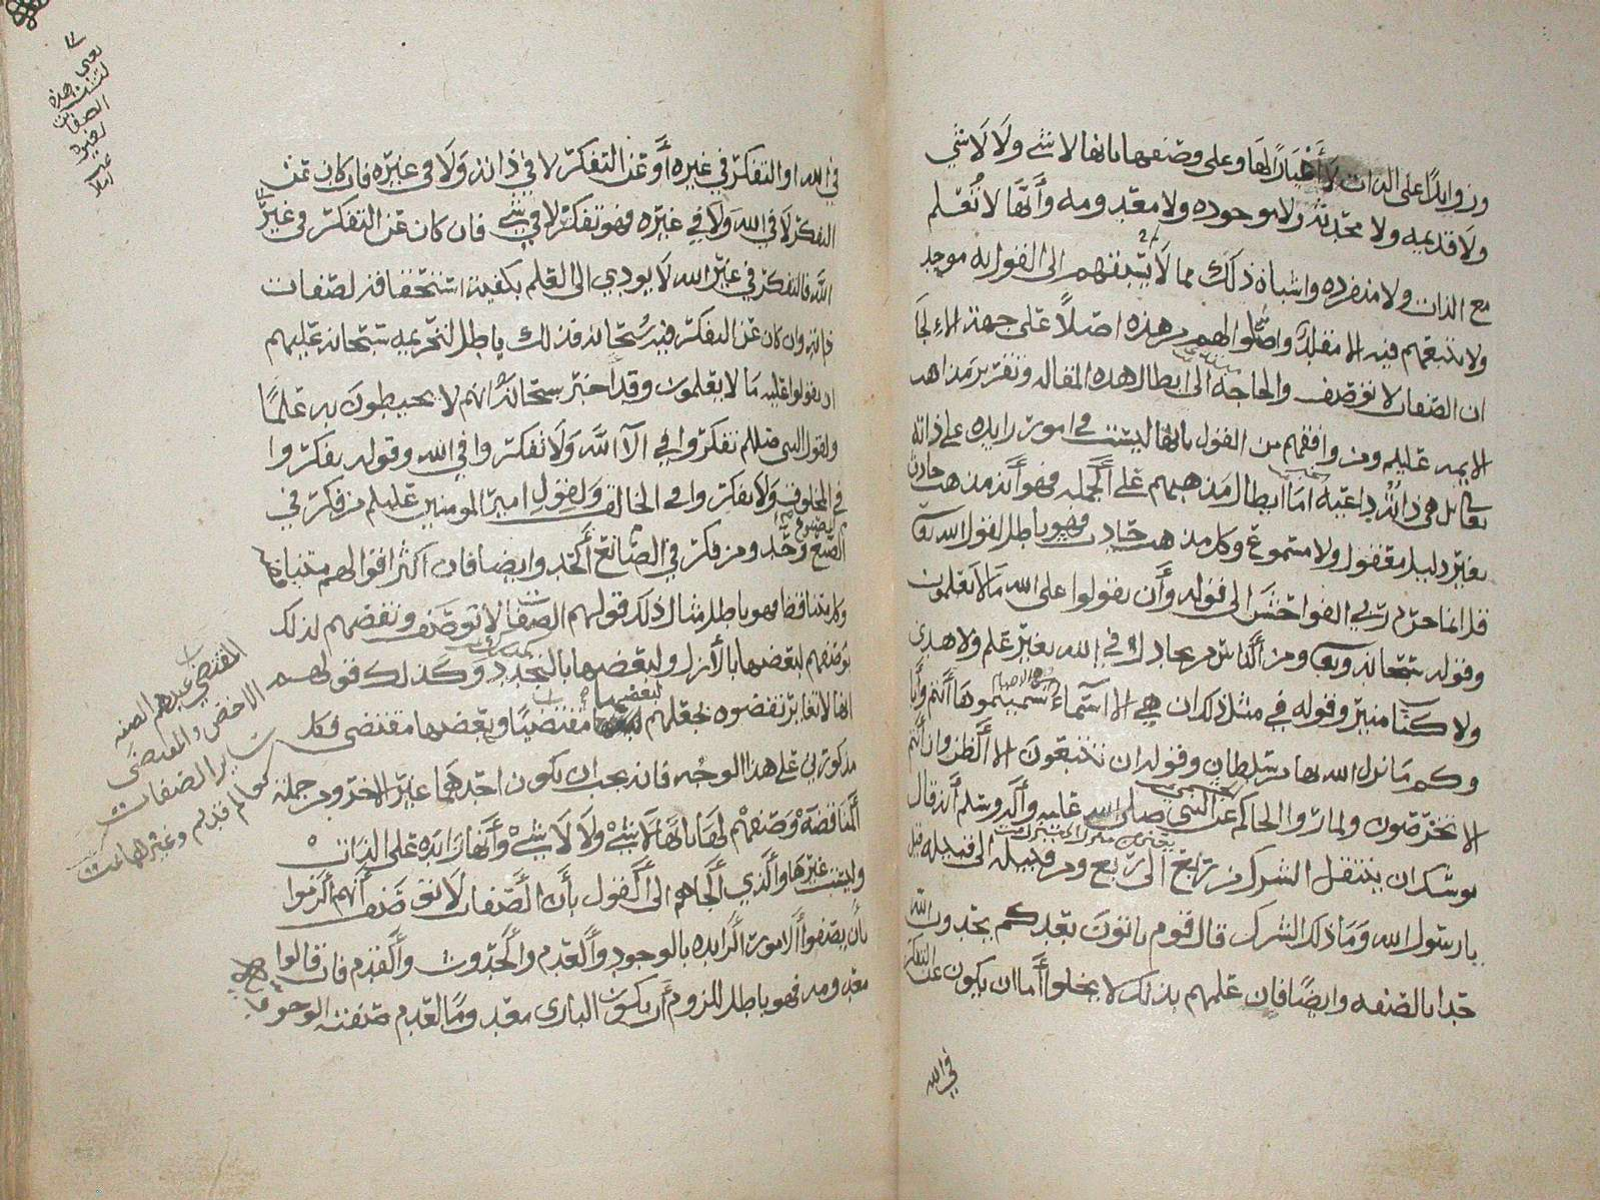 وزوايدًا على الذات لا أغيارًا لها وعلى وصفها بانها لا شي ولا لا شي
ولا قديمه ولا محدثه ولا موجوده ولا معدومه وأنها لا تُعلم
مع الذات ولا منفرده واشباه ذلك مما لا يسبقهم الى القول به موحد
ولا يتبعهم فيه الا مقلد واصّلوا لهم هذه اصلًا على جهة الالجا
ان الصفات لا توصف والحاجه الى ابطال هذه المقاله وتقرير مذاهب
الايمه عليهم ومن وافقهم من القول بانها ليست امور زايده على ذاته
تعالى هي داعيه اما ابطال مذهبهم على الجمله فهو أنه مذهب حادث
بغير دليل معقول ولا مسموع وكل مذهب حادث فهو باطل لقول الله تعالى
قل انما حرم ربي الفواحش الى قوله وأن تقولوا على الله ما لا تعلمون
وقوله سبحانه وتعالى ومن الناس من يجادل في الله بغير علم ولا هدى
ولا كتاب منير وقوله في مثل ذلك ان هي الا اسماء سميتموها أنتم وآبا
وكم ما انزل الله بها من سلطان وقوله ان تتبعون الا الظن وان أنتم
الا تخرصون ولما روا الحاكم عن النبي صلى الله عليه وآله وسلم أنه قال
يوشك ان ينتقل الشرك من ربع الى ربع ومن قبيله الى قبيله قيل
يا رسول الله وما ذلك الشرك قال قوم ياتون بعدكم يحدون الله
حدا بالصفه وايضًا فان علمهم بذلك لا يخلوا أما ان يكون عن التفكر
في الله
في الله او التفكر في غيره أو عن التفكر لا في ذاته ولا في غيره فان كان عن
التفكر لا في الله ولا في غيره فهو تفكر لا في شي فان كان عن التفكر في غير
الله فالتفكر في غير الله لا يودي الى العلم بكيفية استحقاقه لصفات
ذاته وان كان عن التفكر فيه سبحانه فذلك باطل لتحريمه سبحانه عليهم
ان يقولوا عليه ما لا يعلمون وقد اخبر سبحانه انهم لا يحيطون به علمًا
ولقول النبي صللم تفكروا في الآ الله ولا تفكروا في الله وقوله تفكروا
في المخلوق ولا تفكروا في الخالق ولقول امير المومنين عليلم من فكر في
الصنع وحّد ومن فكر في الصانع ألحد وايضا فان اكثر اقوالهم متناقضا
وكل متناقض فهو باطل مثال ذلك قولهم الصفات لا توصف ونقضهم لذلك
بوصفهم لبعضها بالأزل ولبعضها بالتجدد وكذلك قولهم
انها لا تغاير نقضوه بجعلهم لبعضها مقتضيًا وبعضها مقتضى وكل
مذكورين على هذا الوجه فانه يجب ان يكون احدهما غير الاخر ومن جملة
المناقضة وصفهم لها بانها لا شيْ ولا لا شيْ وأنها زايده على الذات
وليست غيرها والذي ألجاهم الى القول بأن الصفات لا توصف أنهم ألزموا
بأن يصفوا الامور الزايده بالوجود والعدم والحدوث والقدم فان قالوا
معدومه فهو باطل للزوم أن يكون الباري معدومًا العدم صفته الوجود
يعني
لتثنين هذه
الصفاتين
المقتضي عندهم الصفه
الاخص والمقتضى
ساير الصفات